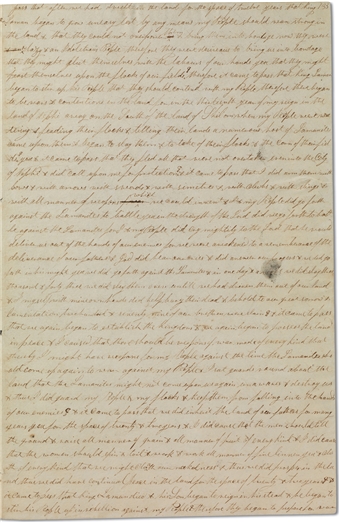 pass that after we had dwelt in the land for the space of twelve years that King
began to grow uneasy lest by any means my People should wax strong in
the land & that they could not overpower them & bring them into bondage now they were
a lazy & an People therefore they were desirous to bring us into bondage
that they might glut themselves with the labours of our hands yea that they might
feast themselves upon the flocks of our fields therefore it came to pass that King Laman
began to stir up his People that they should contend with my People therefore there began
to be wars & contentions in the land for in the thirteenth year of my reign in the
land of Nephi away on the South of the land of Shilom when my People were
& feeding their flocks & tilling their lands a numerous host of Lamanites
came upon them & began to slay them & to take of their flocks & the corn of their fields
& it came to pass that they fled all that were not overtaken even into the City
of Nephi & did call upon me for protection & it came to pass that I did arm them with
bows & with arrows with swords & with cimeters & with clubs & with slings &
with all manner of weapons which we could invent & I & my People did go forth
against the Lamanites to battle yea in the strength of the Lord did we go forth to battle
against the Lamanites for I & my People did cry mightily to the Lord that he would
deliver us out of the hands of our enemies for we were awakened to a remembrance of the
deliverance of our fathers & God did hear our cries & did answer our prayers & we did go
forth in his might yea we did go forth against the Lamanites & in one day & a night we did slay three
thousand & forty three we did slay them even until we had driven them out of our land
& I myself with mine own hands did help bury their dead & behold to our great sorrow &
lamentation two hundred & seventy nine of our brethren were slain & it came to pass
that we again began to establish the Kingdom & we again began to possess the land
in peace & I caused that there should be weapons of war made of every kind that
thereby I might have weapons for my People against the time the Lamanites should
come up again to war against my People & I set guards round about the
land that the Lamanites might not come upon us again unawares & destroy us
& thus I did guard my People & my flocks & keep them from falling into the hands
of our enemies & it came to pass that we did inherit the land of our fathers for many
years yea for the space of twenty & two years & I did cause that the men should till
the ground & raise all manner of grain & all manner of fruit of every kind & I did cause
that the women should spin & toil & work & work all manner of fine linen yea &
of every kind that we might clothe our nakedness & thus we did prosper in the land
thus we did have continual peace in the land for the space of twenty & two years &
it came to pass that King Laman died & his son began to reign in his stead & he began to
stir his People up in rebellion against my People therefore they began to prepare for war